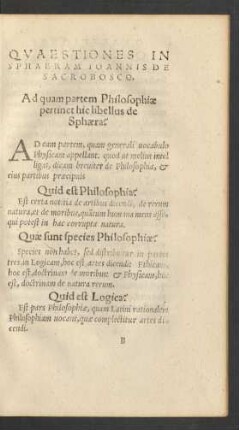 QVAESTIONES IN
SPHAERAM IOANNIS DE
SACROBOSCO.
Ad quam partem Philosophiæ
pertinet hic libellus de
Sphæra?
AD eam partem, quam generali uocabulo
Physicam appellant. quod ut melius intel
ligas, dicam breuiter de Philosophia, &
eius partibus præcipuis
Quid est Philosophia?
Est certa notitia de artibus dicendi, de rerum
natura, et de moribus, quatenus humana mens assequi
potest in hac corrupta natura.
Quæ sunt species Philosophiæ?
Species non habet, sed distribuitur in partes
tres in Logicam, hoc est artes dicendi: Ethicam,
hoc est, doctrinam de moribus: & Physicam, hoc
est, doctrinam de natura rerum.
Quid est Logica?
Est pars Philosophiæ, quam Latini rationalem
Philosophiam uocant, quæ complectitur artes di
cendi.
B